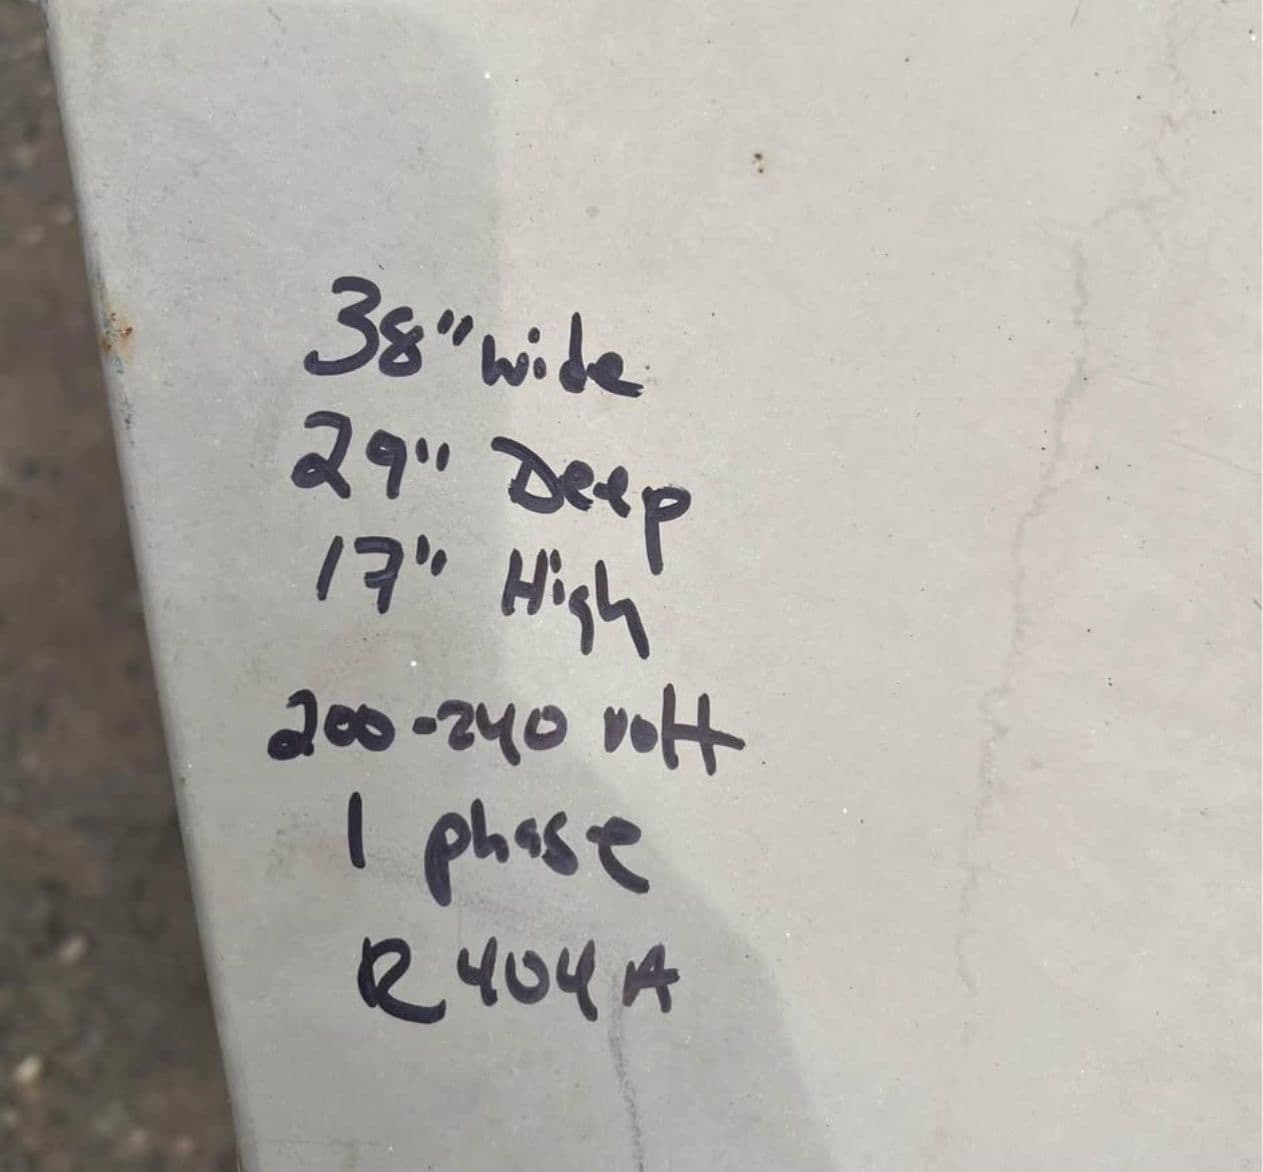 38" wide
29" Deep
17" High
200-240 volt
1 phase
R404A